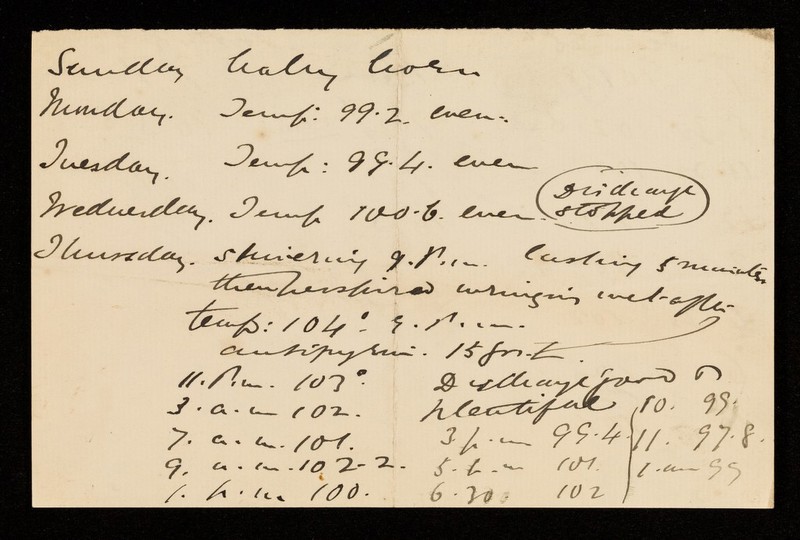 Sunday baby born
Monday. Temp: 99.2. even:
Tuesday. Temp: 99.4. even
Wednesday. Temp 100.6. even. Discharge stopped
Thursday. shivering 9.P.m. lasting 5 minutes
then perspired wringing wet after
temp: 104°. 9.P.m.
antipyrin. 15 grs.
11.P.m. 103°. Discharge good &
3.a.m 102. plentiful 10. 99.
7.a.m. 101. 3 p.m 99.4. 11. 97.8.
9.a.m. 102.2. 5.p.m 101. 1.am 99
1.p.m. 100. 6.30 102